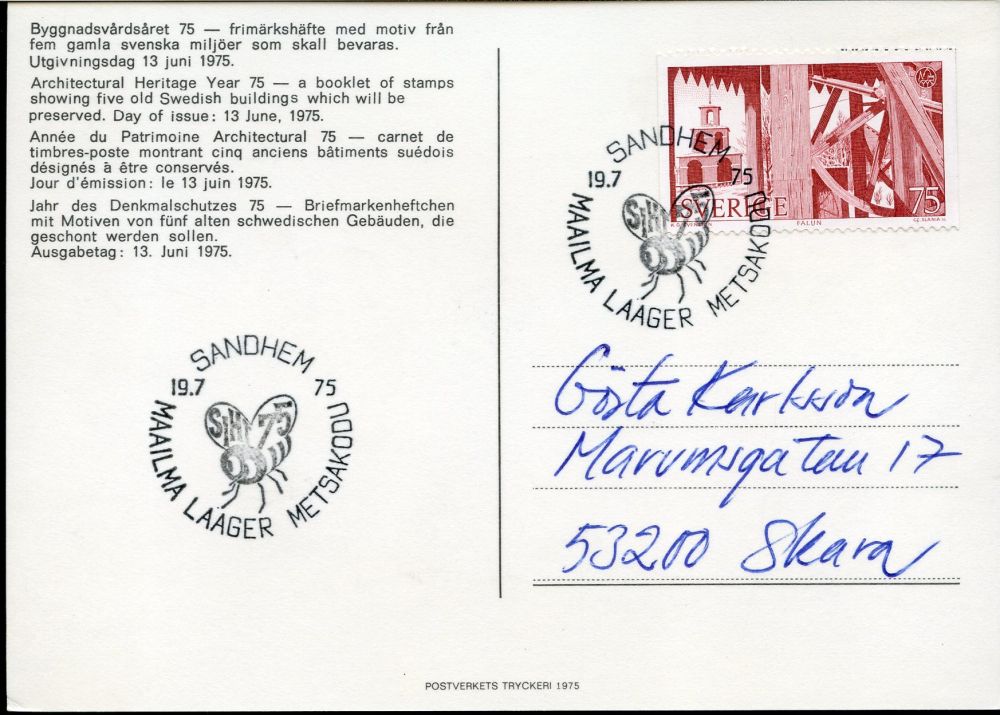 Byggnadsvårdsåret 75 — frimärkshäfte med motiv från
fem gamla svenska miljöer som skall bevaras.
Utgivningsdag 13 juni 1975.
Architectural Heritage Year 75 — a booklet of stamps
showing five old Swedish buildings which will be
preserved. Day of issue: 13 June, 1975.
Année du Patrimoine Architectural 75 — carnet de
timbres-poste montrant cinq anciens bâtiments suédois
désignés à être conservés.
Jour d'émission: le 13 juin 1975.
Jahr des Denkmalschutzes 75 — Briefmarkenheftchen
mit Motiven von fünf alten schwedischen Gebäuden, die
geschont werden sollen.
Ausgabetag: 13. Juni 1975.
SVERIGE 75
FALUN
CZ. SLANIA SC.
SANDHEM
19.7 75
MAAILMA LAAGER METSAKODU
SANDHEM
19.7 75
75
MAAILMA LAAGER METSAKODU
Gösta Karlsson
Marumsgatan 17
53200 Skara
POSTVERKETS TRYCKERI 1975